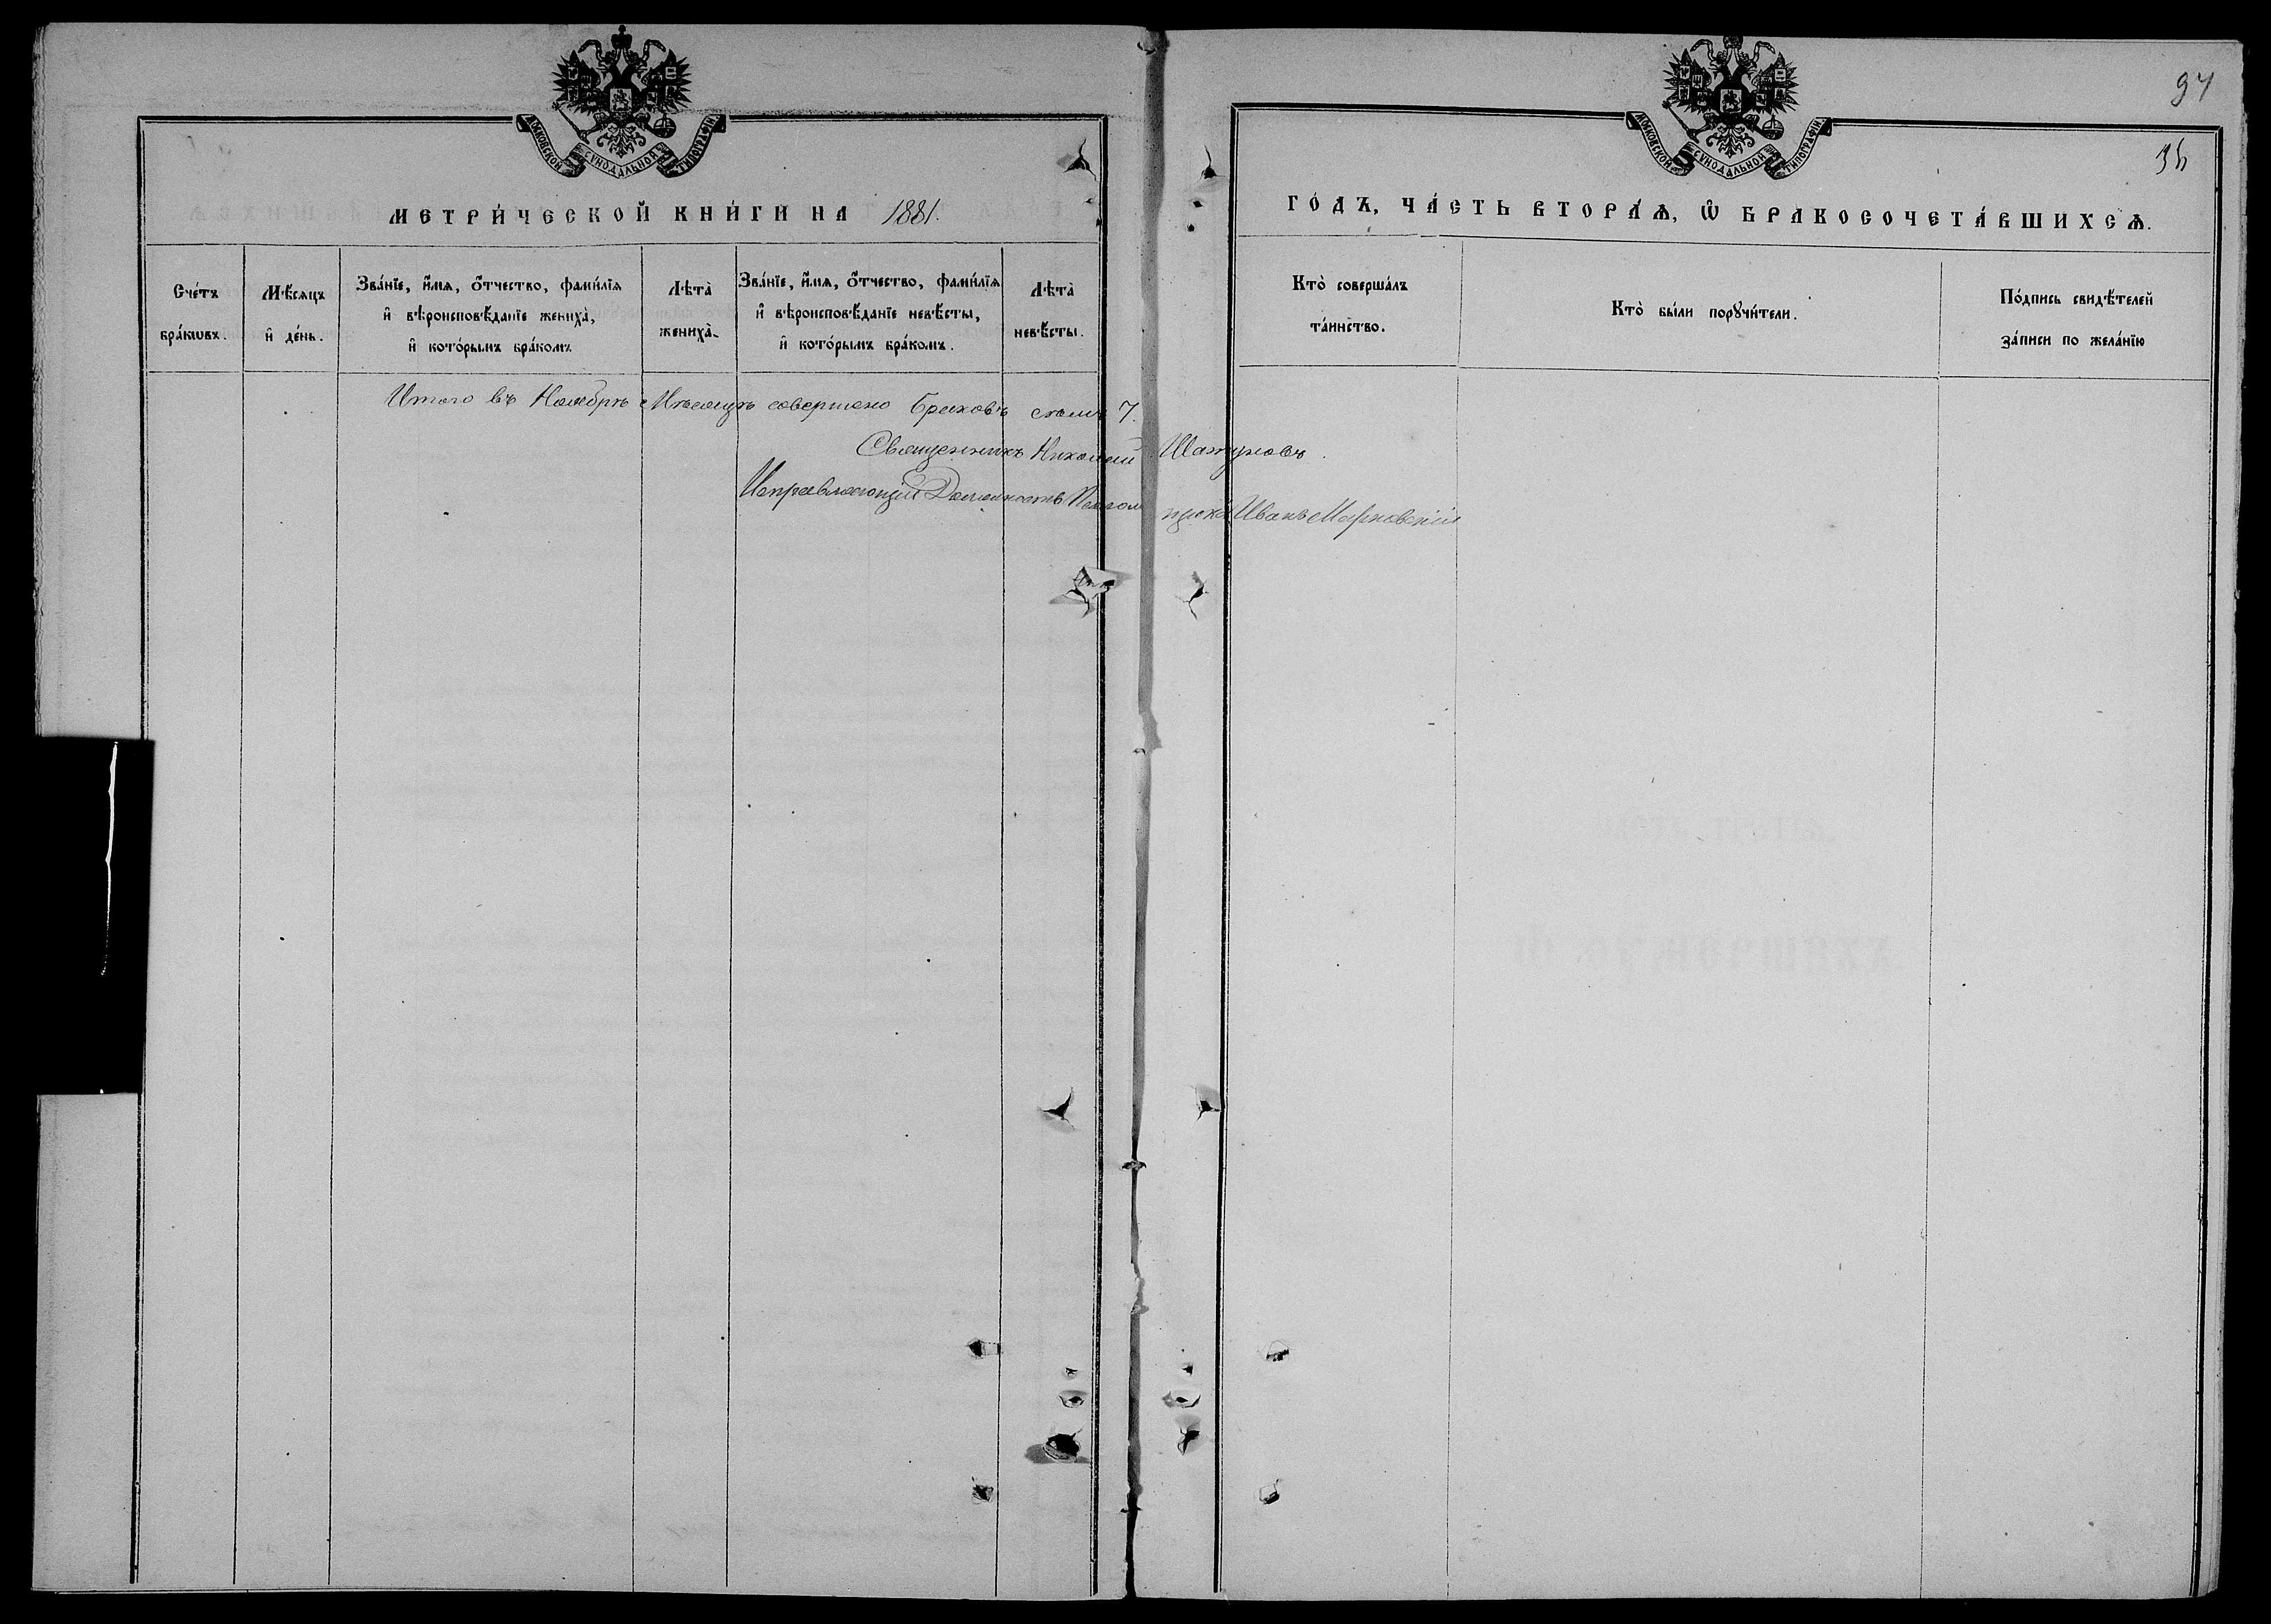 97
34
МОСКОВСКОЙ СѴНОДАЛЬНОЙ ТИПОГРАФІИ
МОСКОВСКОЙ СѴНОДАЛЬНОЙ ТИПОГРАФІИ
МЕТРИ́ЧЕСКОЙ КНИ́ГИ НА 1881.
ГО́ДЪ, ЧА́СТЬ ВТОРА́Ѧ, Ѡ҆ БРАКОСОЧЕТА́ВШИХСѦ.
Сче́тъ
бра́кѡвъ.
Мѣ́сяцъ
и҆ де́нь.
Зва́нїе, и҆́мѧ, ѻ҆́тчество, фами́лїѧ
и҆ вѣроисповѣ́данїе жениха̀,
и҆ кото́рымъ бра́комъ
Лѣта̀
жениха̀.
Зва́нїе, и҆́мѧ, ѻ҆́тчество, фами́лїѧ
и҆ вѣроисповѣ́данїе невѣ́сты,
и҆ кото́рымъ бра́комъ.
Лѣта̀
невѣ́сты.
Кто̀ соверша́лъ
та́инство.
Кто̀ бы́ли порꙋчи́тели.
По́дпись свидѣ́телей
за́писи по жела́нїю
Итого въ Ноябрѣ Мѣсяцѣ совершено Браковъ семь 7.
Священникъ Николай Шатуновъ.
Исправляющій Должность Псаломщика Иванъ Марковскій